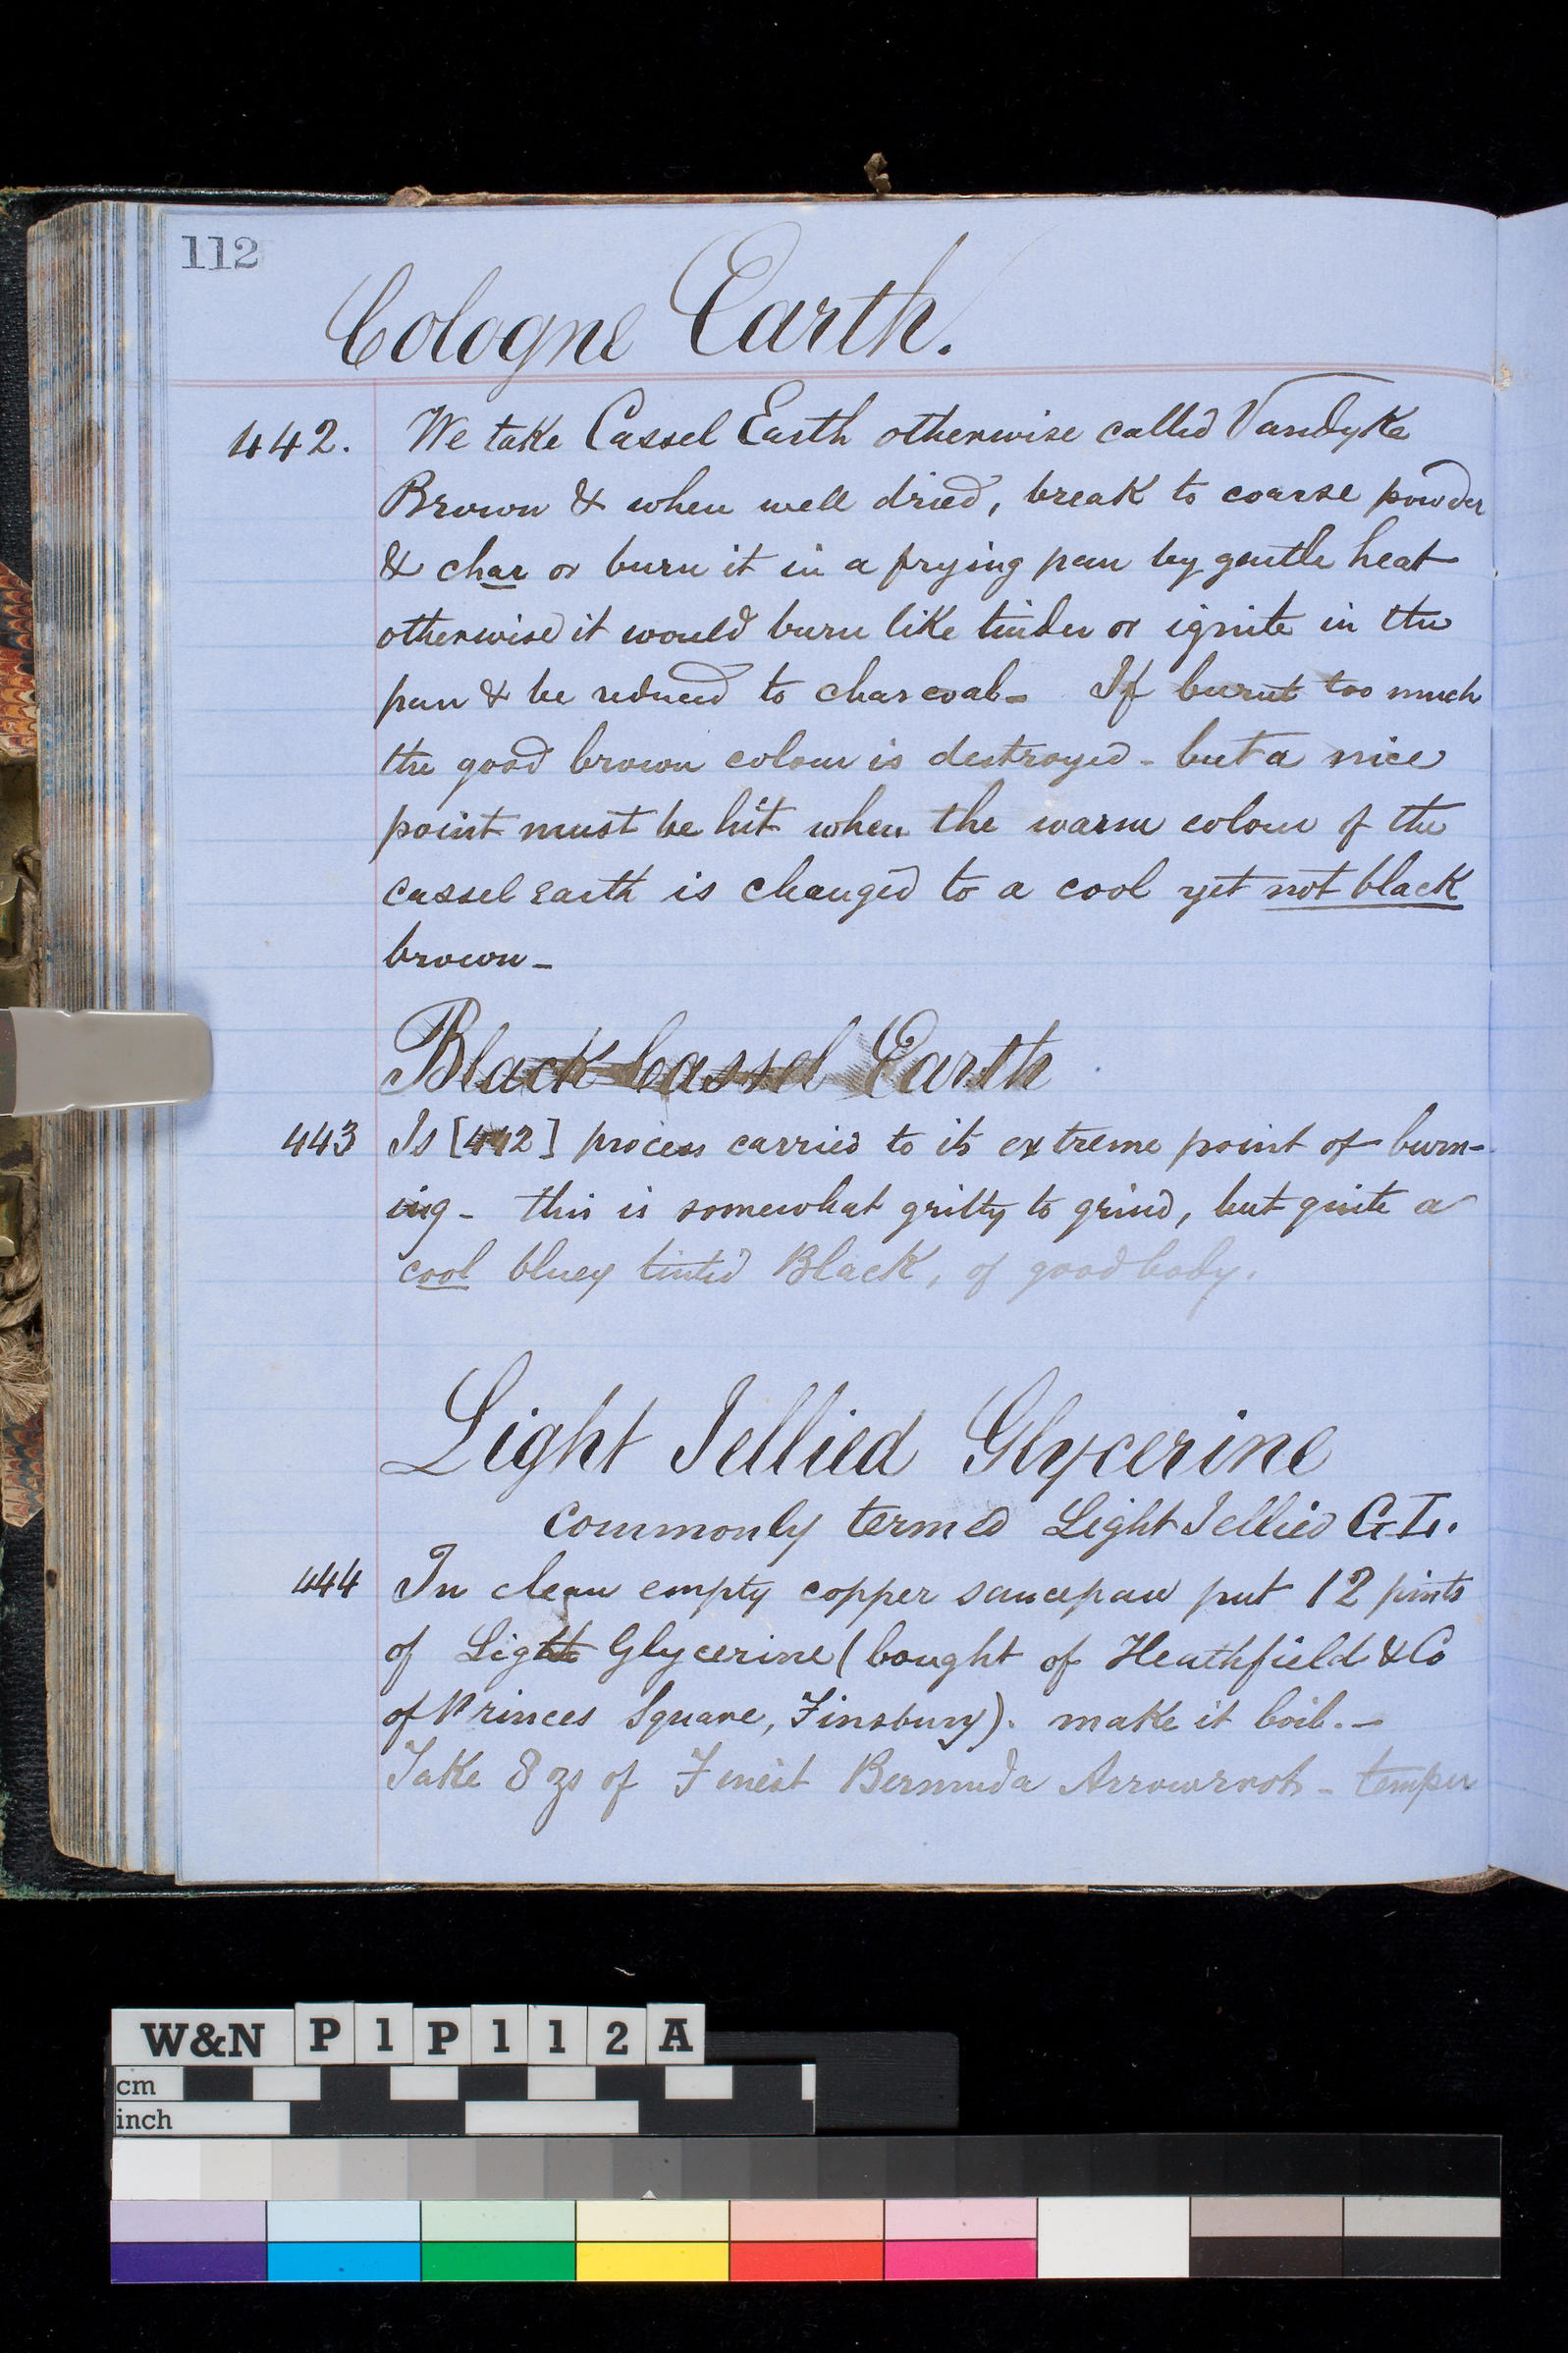 112
Cologne Earth.
442. We take Cassel Earth otherwise called Vandyke
Brown & when well dried, break to coarse powder
& char or burn it in a frying pan by gentle heat
otherwise it would burn like tinder or ignite in the
pan & be reduced to charcoal - If burnt too much
the good brown colour is destroyed - but a nice
point must be hit when the warm colour of the
Cassel Earth is changed to a cool yet not black
brown -
Black Cassel Earth
443 Is [442] process carried to its extreme point of burn-
ing - this is somewhat gritty to grind, but quite a
cool bluey tinted Black, of good body.
Light Jellied Glycerine
commonly termed Light Jellied
444 In clean empty copper saucepan put 12 pints
of Light Glycerine (bought of Heathfield & Co
of Princes Square, Finsbury). make it boil. -
Take 8 ozs of Finest Bermuda Arrowroot - temper
W&N P1P112A
cm
inch